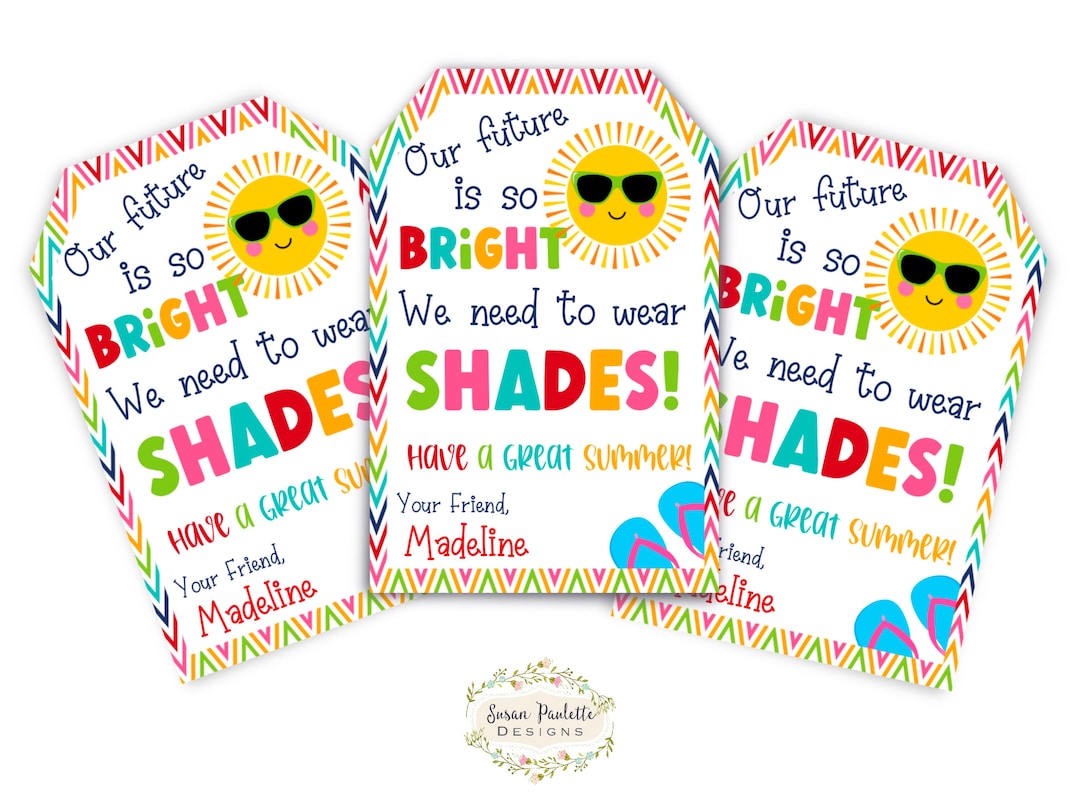 Our future
is so
BRiGHT
We need to wear
SHADES!
Have a Great Summer!
Your Friend,
Madeline
Our future
is so
BRiGHT
We need to wear
SHADES!
Have a Great Summer!
Your Friend,
Madeline
Our future
is so
BRiGHT
We need to wear
SHADES!
Have a Great Summer!
Your Friend,
Madeline
Susan Paulette
DESIGNS